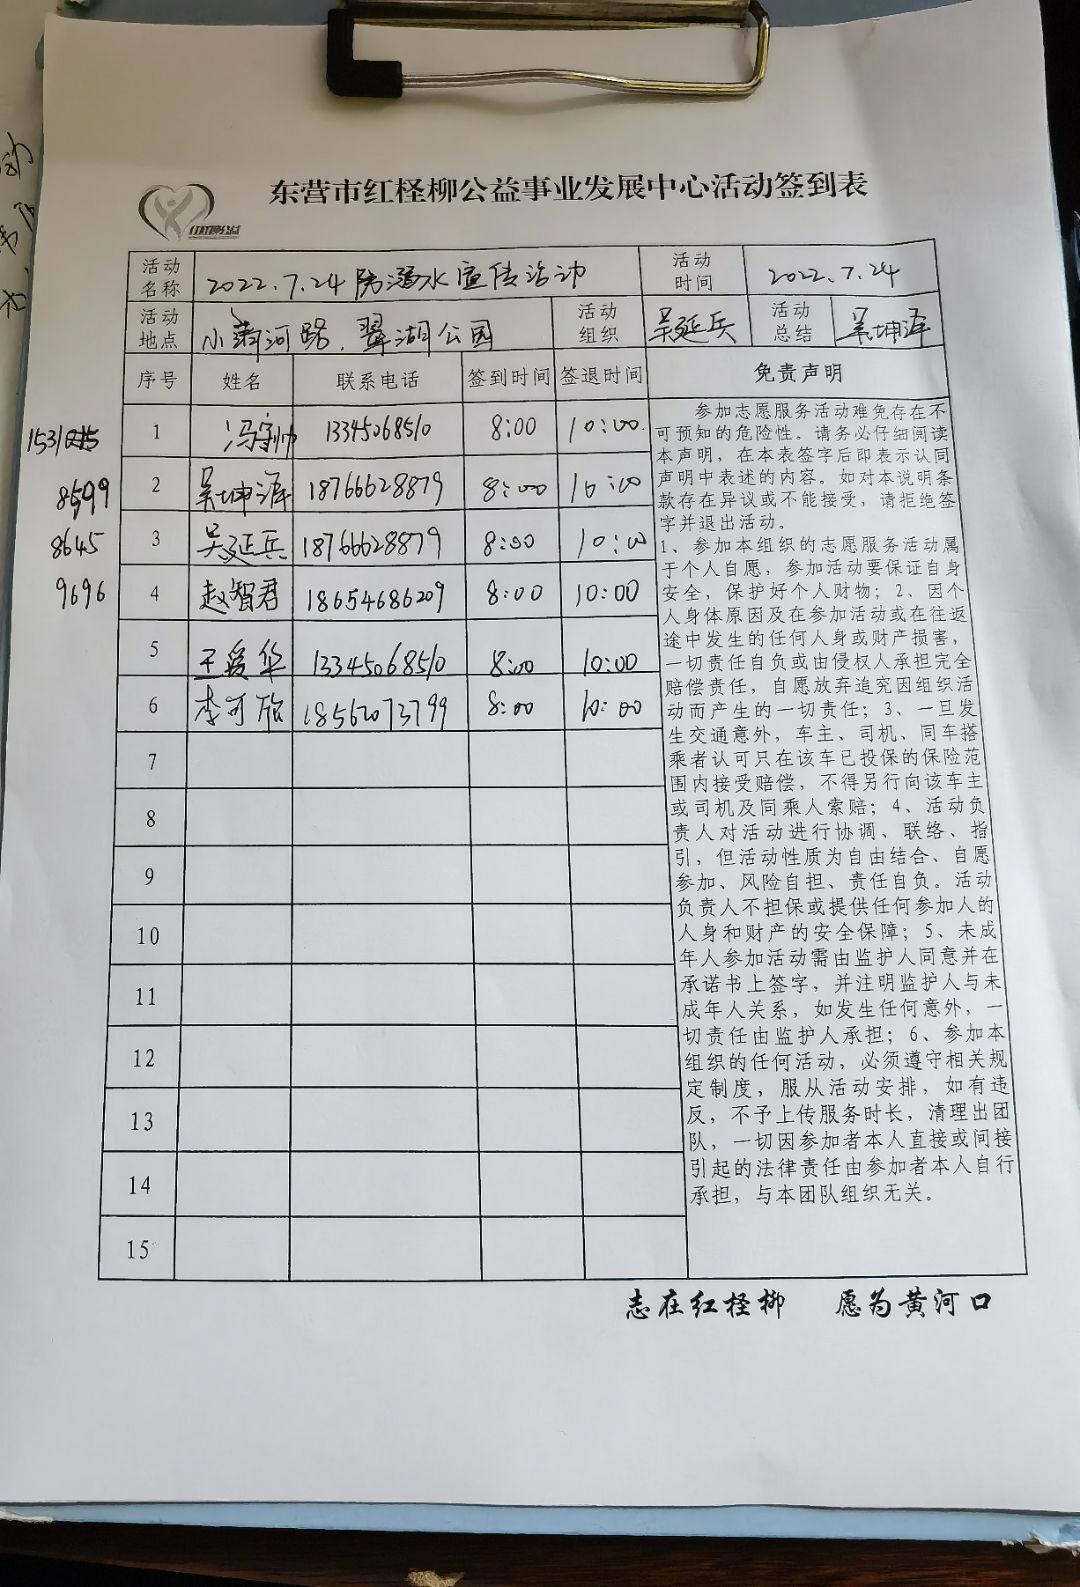 东营市红柽柳公益事业发展中心活动签到表
红柽柳公益
活动名称 2022.7.24防溺水宣传活动 活动时间 2022.7.24
活动地点 小萧河路、翠湖公园 活动组织 吴延兵 活动总结 吴坤泽
序号 姓名 联系电话 签到时间 签退时间 免责声明
1 冯宇帅 13345068510 8:00 10:00
2 吴坤泽 18766628879 8:00 10:00
3 吴延兵 18766628879 8:00 10:00
4 赵智君 18654686209 8:00 10:00
5 王爱华 13345068510 8:00 10:00
6 李可欣 18562073799 8:00 10:00
7
8
9
10
11
12
13
14
15
8645
9696
参加志愿服务活动难免存在不
可预知的危险性。请务必仔细阅读
本声明,在本表签字后即表示认同
声明中表述的内容。如对本说明条
款存在异议或不能接受,请拒绝签
字并退出活动。
1、参加本组织的志愿服务活动属
于个人自愿,参加活动要保证自身
安全,保护好个人财物;2、因个
人身体原因及在参加活动或在往返
途中发生的任何人身或财产损害,
一切责任自负或由侵权人承担完全
赔偿责任,自愿放弃追究因组织活
动而产生的一切责任;3、一旦发
生交通意外,车主、司机、同车搭
乘者认可只在该车已投保的保险范
围内接受赔偿,不得另行向该车主
或司机及同乘人索赔;4、活动负
责人对活动进行协调、联络、指
引,但活动性质为自由结合、自愿
参加、风险自担、责任自负。活动
负责人不担保或提供任何参加人的
人身和财产的安全保障;5、未成
年人参加活动需由监护人同意并在
承诺书上签字,并注明监护人与未
成年人关系,如发生任何意外,一
切责任由监护人承担;6、参加本
组织的任何活动,必须遵守相关规
定制度,服从活动安排,如有违
反,不予上传服务时长,清理出团
队,一切因参加者本人直接或间接
引起的法律责任由参加者本人自行
承担,与本团队组织无关。
志在红柽柳 愿为黄河口